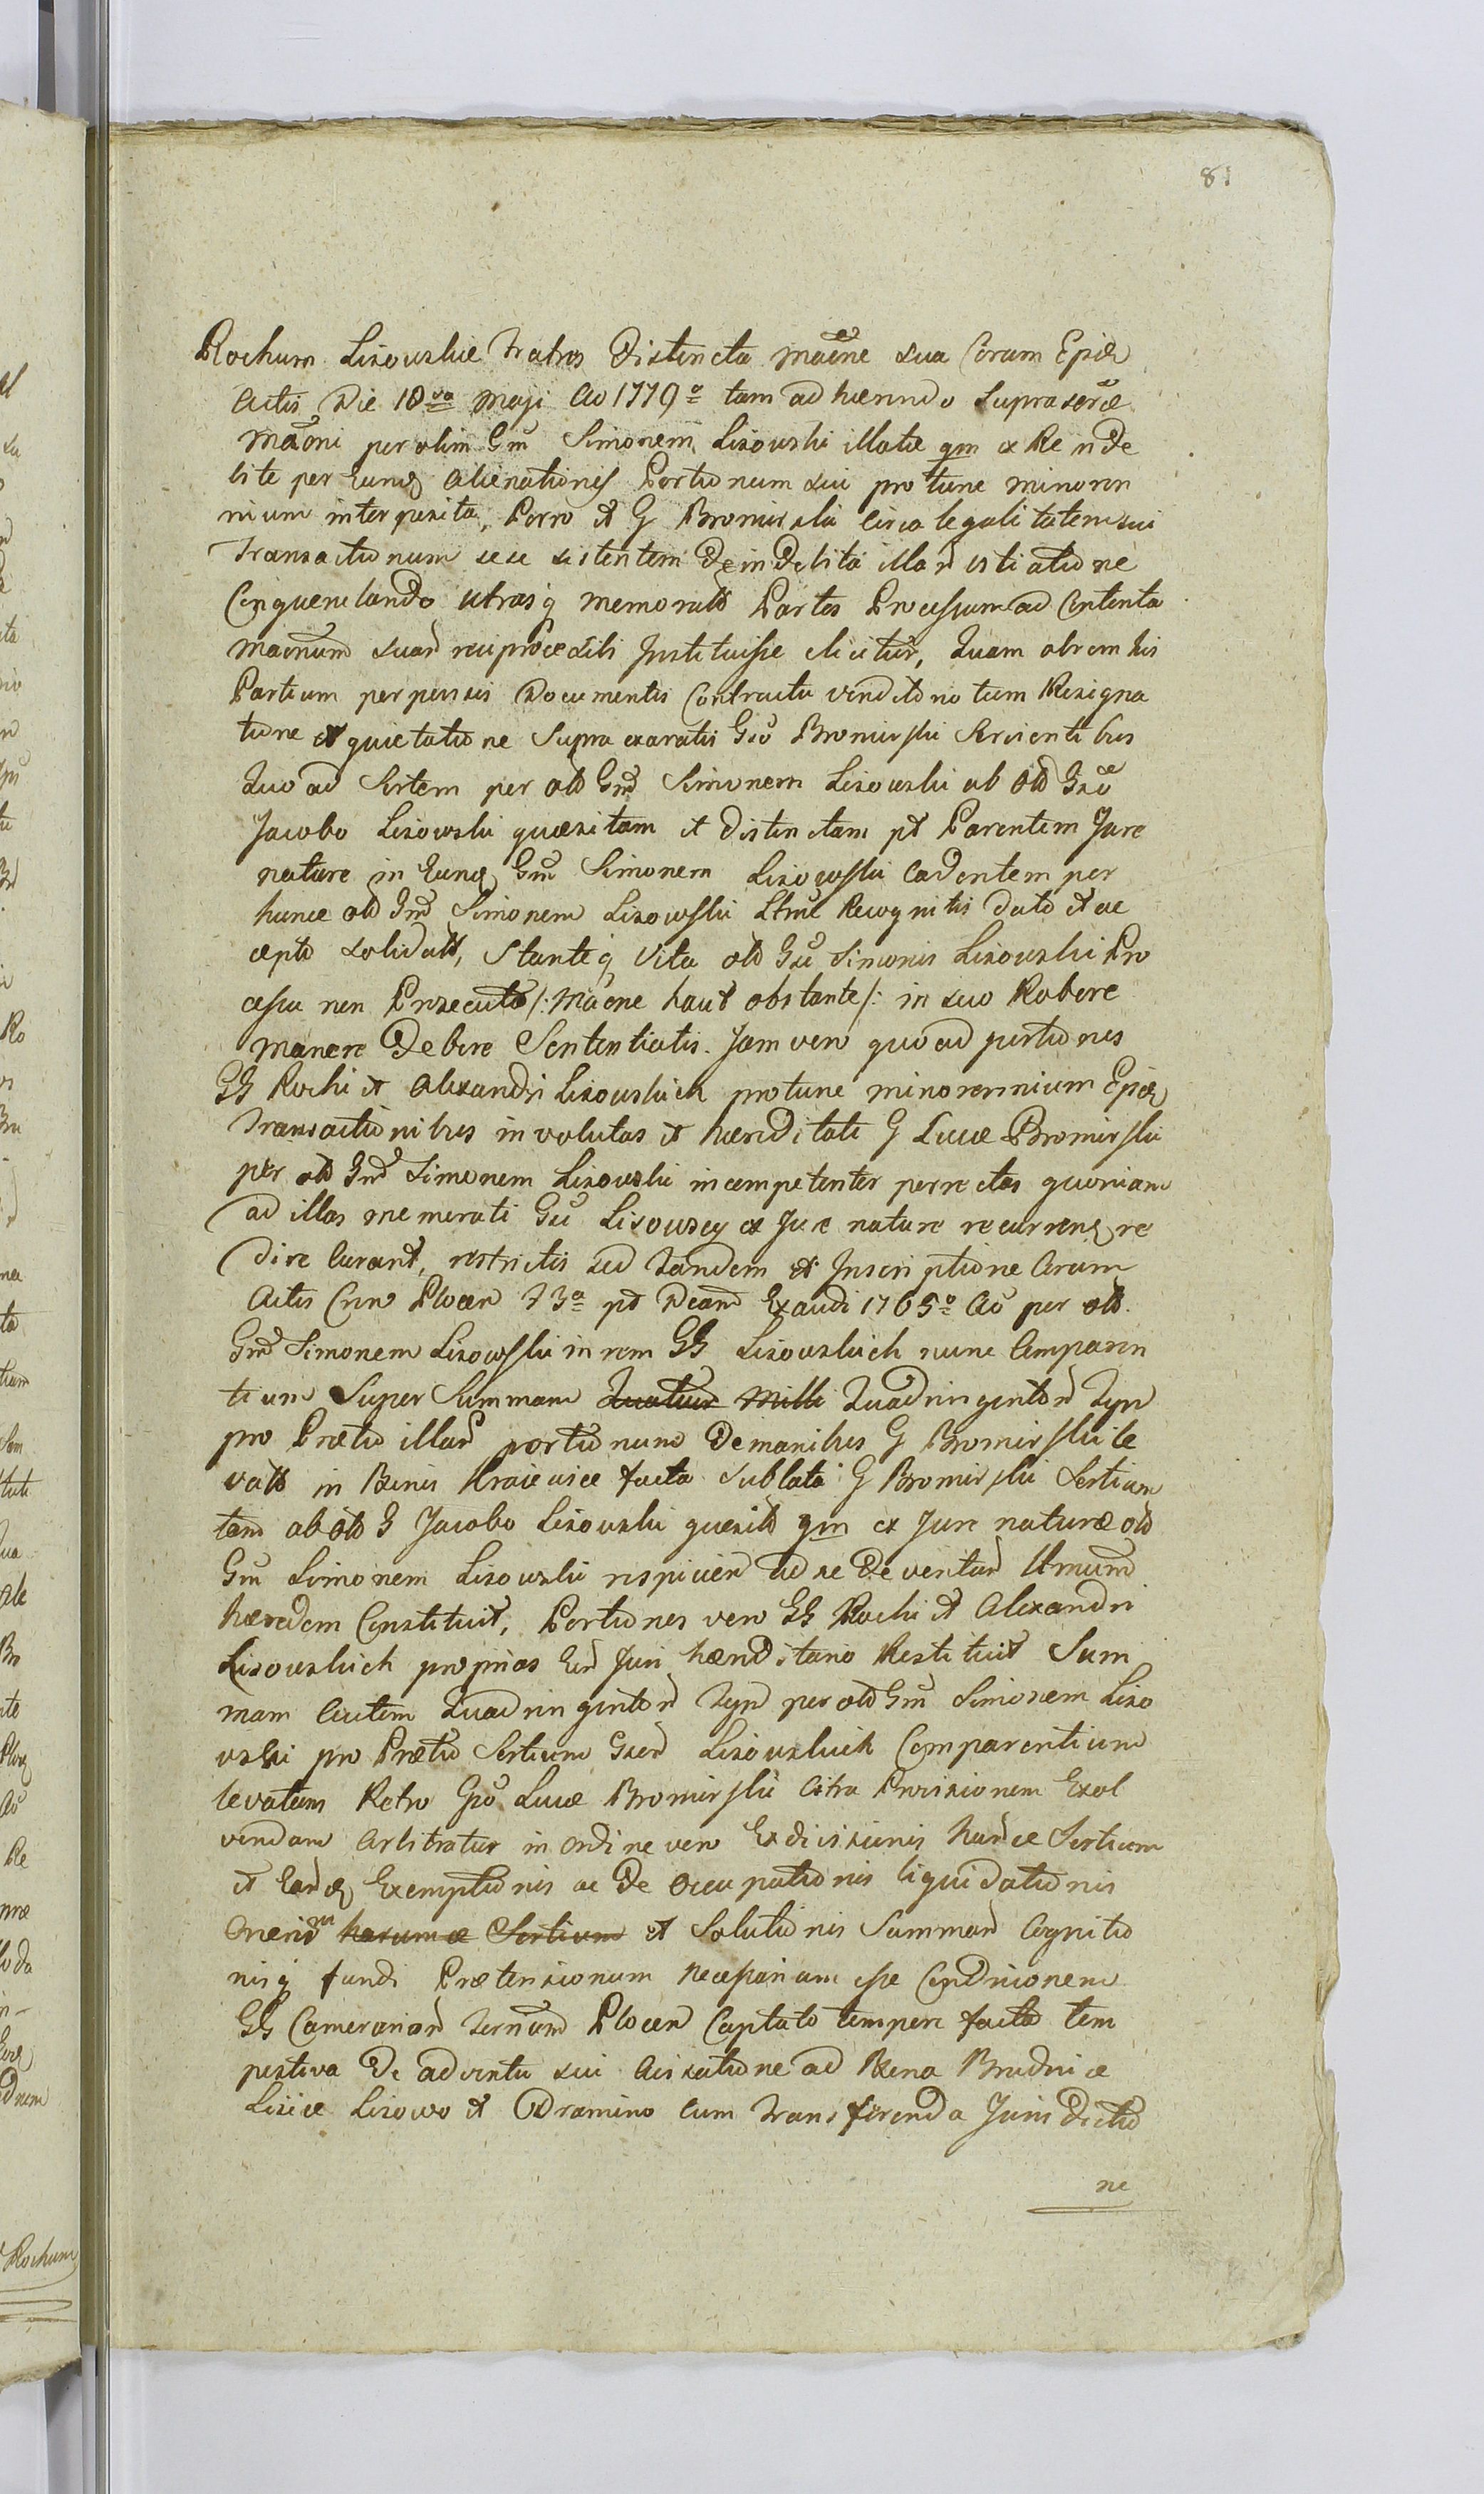 81
Rochum Lisowskie Fratres Distincta maõne sua Coram Epiõ
Actis Die 18va Maji Ao 1779o tam adhærendo suprascrõæ
Maõni per olim Gm Simonem Lisowski illatæ qm ex Re inde
bite per Eundẽ Alienationis Portionum sui pro tunc minoren
nium interposita, Porro et G Bromirski circa legalitatem sui
Transactionum sese sistentem De indebita illarũ
Conquerelando utrasq memoratas Partes Processum ad Contenta
maõnum suarũ reciproce sibi Instituisse elicitur, Quam obrem his
Partium perpensis Documentis Contractu venditionis tum Resigna
tione et quietatione Supra exaratis Gso Bromirski Servientibus
Quo ad Sortem per olõ Gm Simonem Lisowski ab olõ Gso
Jacobo Lisowski quæsitam et distinctam pt Parentem Jure
naturæ in Eundẽ Gm Simonem Lisowski Cadentem per
hunce olõ Gm Simonem Lisowski Recognitis dato et ac
cepto solidatis, Stanteq Vita olõ Gsi Simonis Lisowski Pro
cessu non Prosecuto /: Maõne haut obstante /: in suo Robore
manere Debere Sententiatis. Jam vero quo ad portiones
GG Rochi et Alexandri Lisowskich protunc minorennium Epiõ
Transactionibus involutas et hæreditati G Lucæ Bromirski
per olõ Gm Simonem Lisowski incompetenter perrectas quoniam
ad illas memorati Gsi Lisowscy ex Jure naturæ recurrenẽ re
dire Curant, restrictis sed Tandem et Inscriptione Coram
Actis Cnn Plocen F 3a pt Dcam Exaudi 1765o Ao per olõ
Gm Simonem Lisowski in rem GG Lisowskich nunc Comparen
tium Super Summam Quatuor Mille Quadringentorũ Fpn
pro Pretio illarũ portionum De manibus G Bromirski le
vatis in Binis Kraievice facta Sublata G Bromirski Sortium
tam ab olõ G Jacobo Lisowski quesitõ qm ex Jure naturæ olõ
Gm Simonem Lisowski respicien ad se Deventarũ
hæredem Constituit, Portiones vero GG Rochi et Alexandri
Lisowskich proprias Eorũ Juri hæreditario Restituit Sum
mam Autem Quadringentorũ Fpn per olõ Gm Simonem Liso
wski pro Pretio Sortium Gsorũ Lisowskich Comparentium
levatam Retro Gso Lucæ Bromirski Citra Provisionem Exol
vendam Arbitratur in ordine vero Exdivisionis harũce Sortium
et Earũdẽ Exemptionis ac De Occupationis liquidationis
Onerũm harumce Sortium et Solutionis Summarũ Cognitio
nisq fundi Prætensionum necessariam esse Condicionem
GG Camerarior Terrũm Plocen Captato tempore facta tem
pestiva De adventu sui Avisatione ad Bona Brudnice
Lisice Lisowo et Dramino Cum Transferenda Jurisdictio
ne